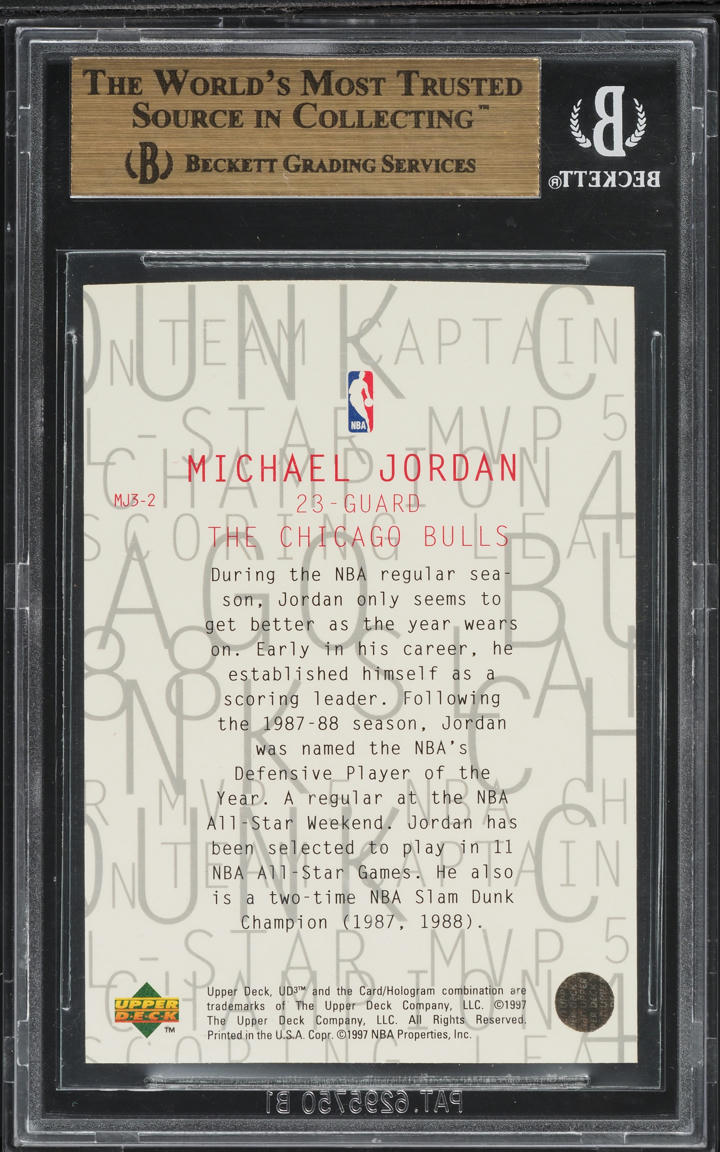 THE WORLD'S MOST TRUSTED
SOURCE IN COLLECTING™
B BECKETT GRADING SERVICES
B
BECKETT®
UNK C
ON TEAM CAPTAIN
L-STAR MVP 5
CHAMPION 4
SCORING LEAD
NBA
MICHAEL JORDAN
MJ3-2
23-GUARD
THE CHICAGO BULLS
AGO BU
During the NBA regular sea-
son, Jordan only seems to
get better as the year wears
on. Early in his career, he
established himself as a
scoring leader. Following
the 1987-88 season, Jordan
was named the NBA's
Defensive Player of the
Year. A regular at the NBA
All-Star Weekend. Jordan has
been selected to play in 11
NBA All-Star Games. He also
is a two-time NBA Slam Dunk
Champion (1987, 1988).
R MVP NBA CH
UNK C
ON TEAM CAPTAIN
L-STAR MVP 5
CHAMPION 4
SCORING LEA
UPPER
DECK
™
Upper Deck, UD3™ and the Card/Hologram combination are
trademarks of The Upper Deck Company, LLC. ©1997
The Upper Deck Company, LLC. All Rights Reserved.
Printed in the U.S.A. Copr. ©1997 NBA Properties, Inc.
PAT. 6295750 B1